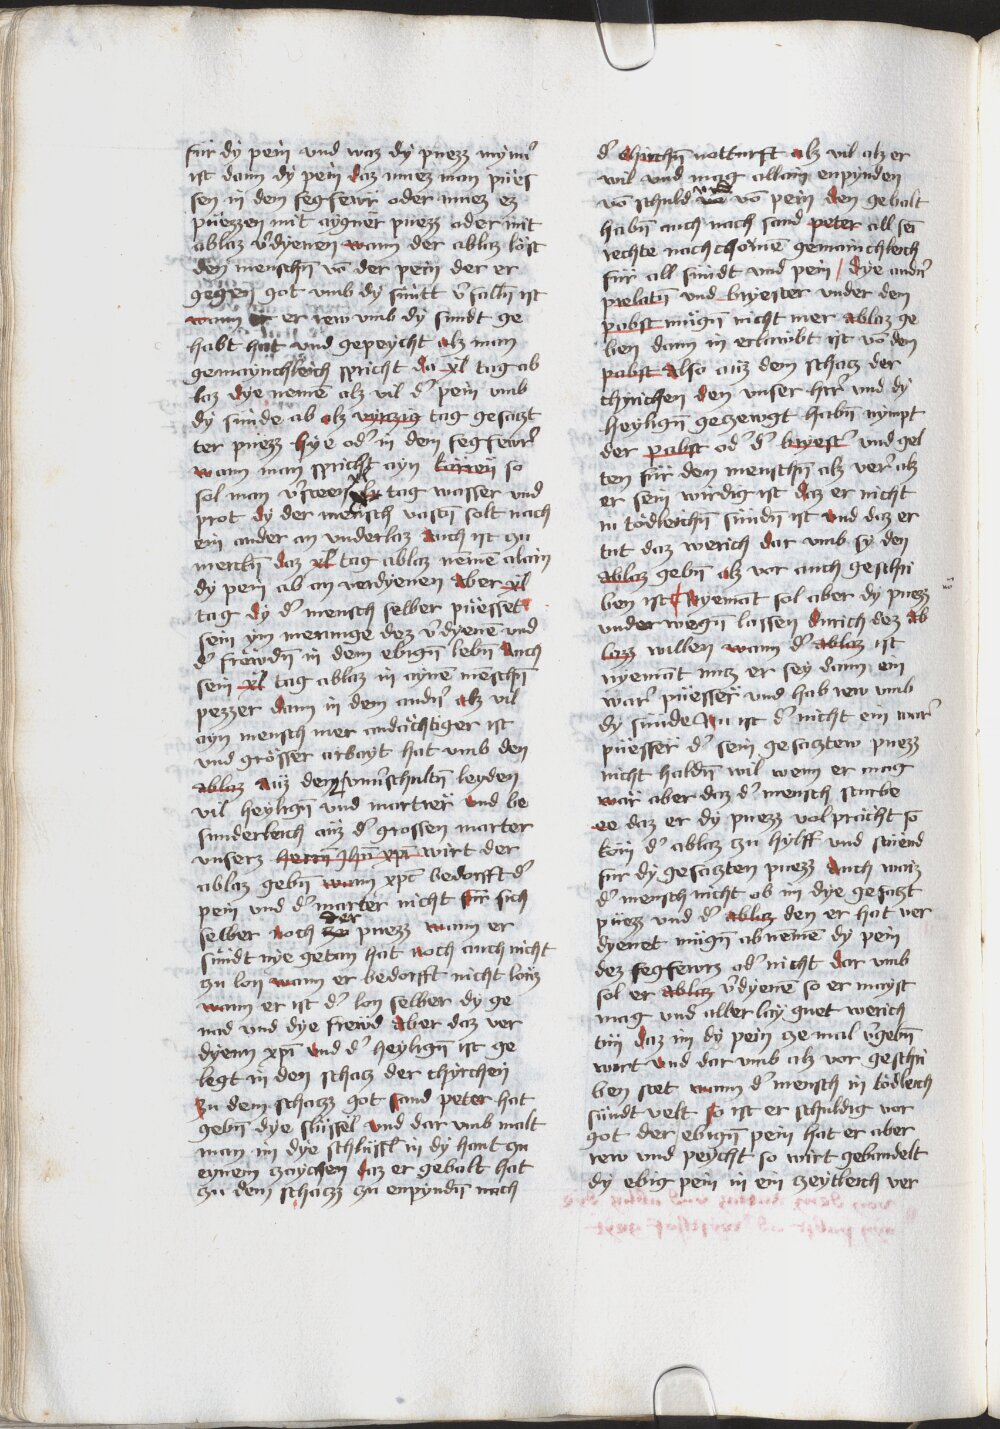 für dy pein vnd waz dy puezz mynn̄
ist dann dy pein daz muez man pües
sen in dem fegfewr oder muez ez
püezzen mit aygner puezz oder mit
ablaz v̄dyenen wann der ablaz löst
den menschn̄ vō der pein der er
gegen got vmb dy sünt v̄falln̄ ist
wann er rew vmb dy sündt ge
habt hat vnd gepeycht alz man
gemaynchleich spricht da xl tag ab
laz dye nemē alz vil d' pein vmb
dy sünde ab alz vyrczig tag gesaczt
ter puezz hye od' in dem fegfewr
wann man spricht ayn karren so
sol man v̄steen xl tag wasser vnd
prot dy der mensch vastn̄ solt nach
ein ander an vnderlaz Auch ist zu
merckn̄ daz xl tag ablaz nemē alain
dy pein ab an verdyenen Aber xl
tag dy d' mensch selber püesset
sein ym merunge dez v̄dyenē vnd
d' frewdn̄ in dem ebign̄ lebn̄ Auch
sein xl tag ablaz in aynē menschn̄
pezzer dann in dem andn̄ alz vil
ayn mensch mer andächtiger ist
vnd grösser arbayt hat vmb den
ablaz Auz dem vnuschultn̄ leyden
vil heylign̄ vnd martrer vnd be
sunderleich auz d' grossen marter
vnserz herrn̄ Jhū xp̄i wirt der
ablaz gebn̄ wann xp̄c bedorfft d'
pein vnd d' marter nicht für sich
selber noch der puezz wann er
sündt nye getan hat noch auch nicht
zu lon wann er bedorfft nicht lonz
wann er ist d' lon selber dy ge
nad vnd dye frewd Aber daz ver
dyenn xp̄i vnd d' heylign̄ ist ge
legt in den schacz der chyrchen
Zu dem schacz got sand peter hat
gebn̄ dye slüssel vnd dar vmb malt
man im dye schlüssl in dy hant zu
eynem zaychen daz er gebalt hat
zu dem schacz zu enpyndn̄ nach
d' chirchn̄ notturft alz vil alz er
wil vnd mag allain enpynden
vō schuld vnd vō pein den gebalt
habn̄ auch nach sand peter all sein
rechte nachchomē gemainchleich
für all sündt vnd pein / dye andn̄
prelatn̄ vnd bryester vnder dem
pabst mügn̄ nicht mer ablaz ge
ben dann in erlawbt ist vō dem
pabst Also auz dem schacz der
chyrichen den vnser herr vnd dy
heylign̄ geczewgt habn̄ nympt
der pabst od' d' bryest' vnd gel
ten für den menschn̄ alz ver alz
er sein wirdig ist daz er nicht
in tödleichn̄ sündn̄ ist vnd daz er
tut daz werich dar vmb sy den
ablaz gebn̄ alz vor auch geschri
ben ist Nyemāt sol aber dy puezz
vnderwegn̄ lassen durich dez ab
lazz willen wann d' ablaz ist
nyemāt nucz er sey dann ein
warer püesser vnd hab rew vmb
dy sünde Nu ist d' nicht ein warer
püesser d' sein gesacztew puezz
nicht haldn̄ wil wenn er mag
wär aber daz d' mensch sturbe
ee daz er dy puezz volprächt so
köm d' ablaz zu hylff vnd stüend
für dy gesaczten puezz Auch waiz
d' mensch nicht ob im dye gesaczt
püezz vnd d' ablaz den er hat ver
dyenet mügn̄ ab nemē dy pein
dez fegfewrz od' nicht dar vmb
sol er ablaz v̄dyenē so er mayst
mag vnd allerlay guet werich
tün daz im dy pein zemal v̄gebn̄
wert vnd dar vmb alz vor geschri
ben stet wann d' mensch in tödleich
sündt velt so ist er schuldig vor
got der ebign̄ pein hat er aber
rew vnd peycht so wirt gebandelt
dy ebig pein in ein zeytleich ver